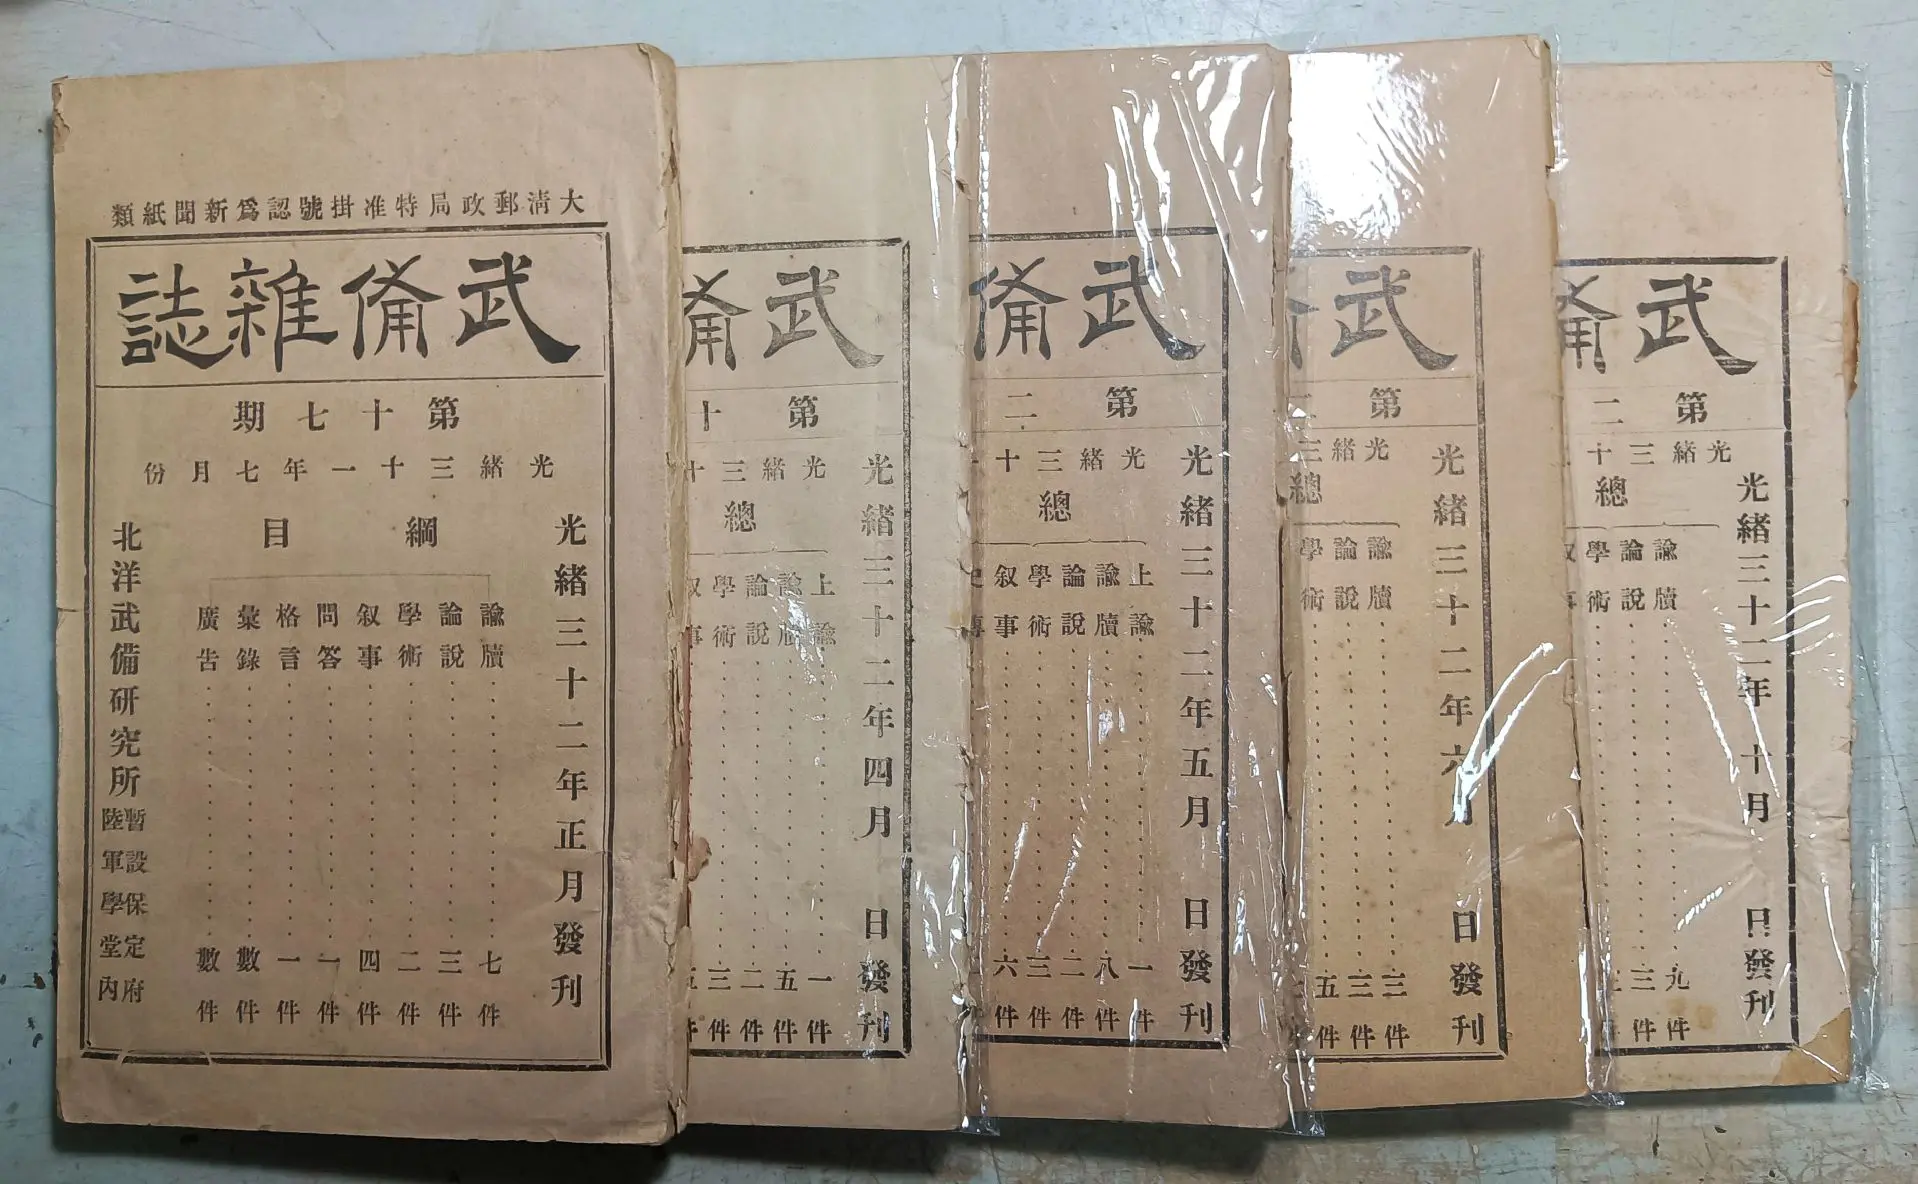 大淸郵政局特准掛號認爲新聞紙類
武備雜誌
第十七期
光緒三十一年七月份
光緒三十二年正月發刊
綱目
諭牘⋯⋯七件
論說⋯⋯三件
學術⋯⋯二件
叙事⋯⋯四件
問答⋯⋯一件
格言⋯⋯一件
彙錄⋯⋯數件
廣告⋯⋯數件
北洋武備研究所
暫設保定府
陸軍學堂內
武備
第十
光緒三十
光緒三十二年四月 日發刊
總
上諭⋯⋯一件
諭牘⋯⋯五件
論說⋯⋯二件
學術⋯⋯三件
叙事⋯⋯五件
武備
第二
光緒三十
光緒三十二年五月 日發刊
總
上諭⋯⋯一件
諭牘⋯⋯八件
論說⋯⋯二件
學術⋯⋯三件
叙事⋯⋯六件
武
第二
光緒三
光緒三十二年六月 日發刊
總
諭牘⋯⋯三件
論說⋯⋯三件
學術⋯⋯五件
武備
第二
光緒三十
光緒三十二年 十月 日發刊
總
諭牘⋯⋯九件
論說⋯⋯三件
學術